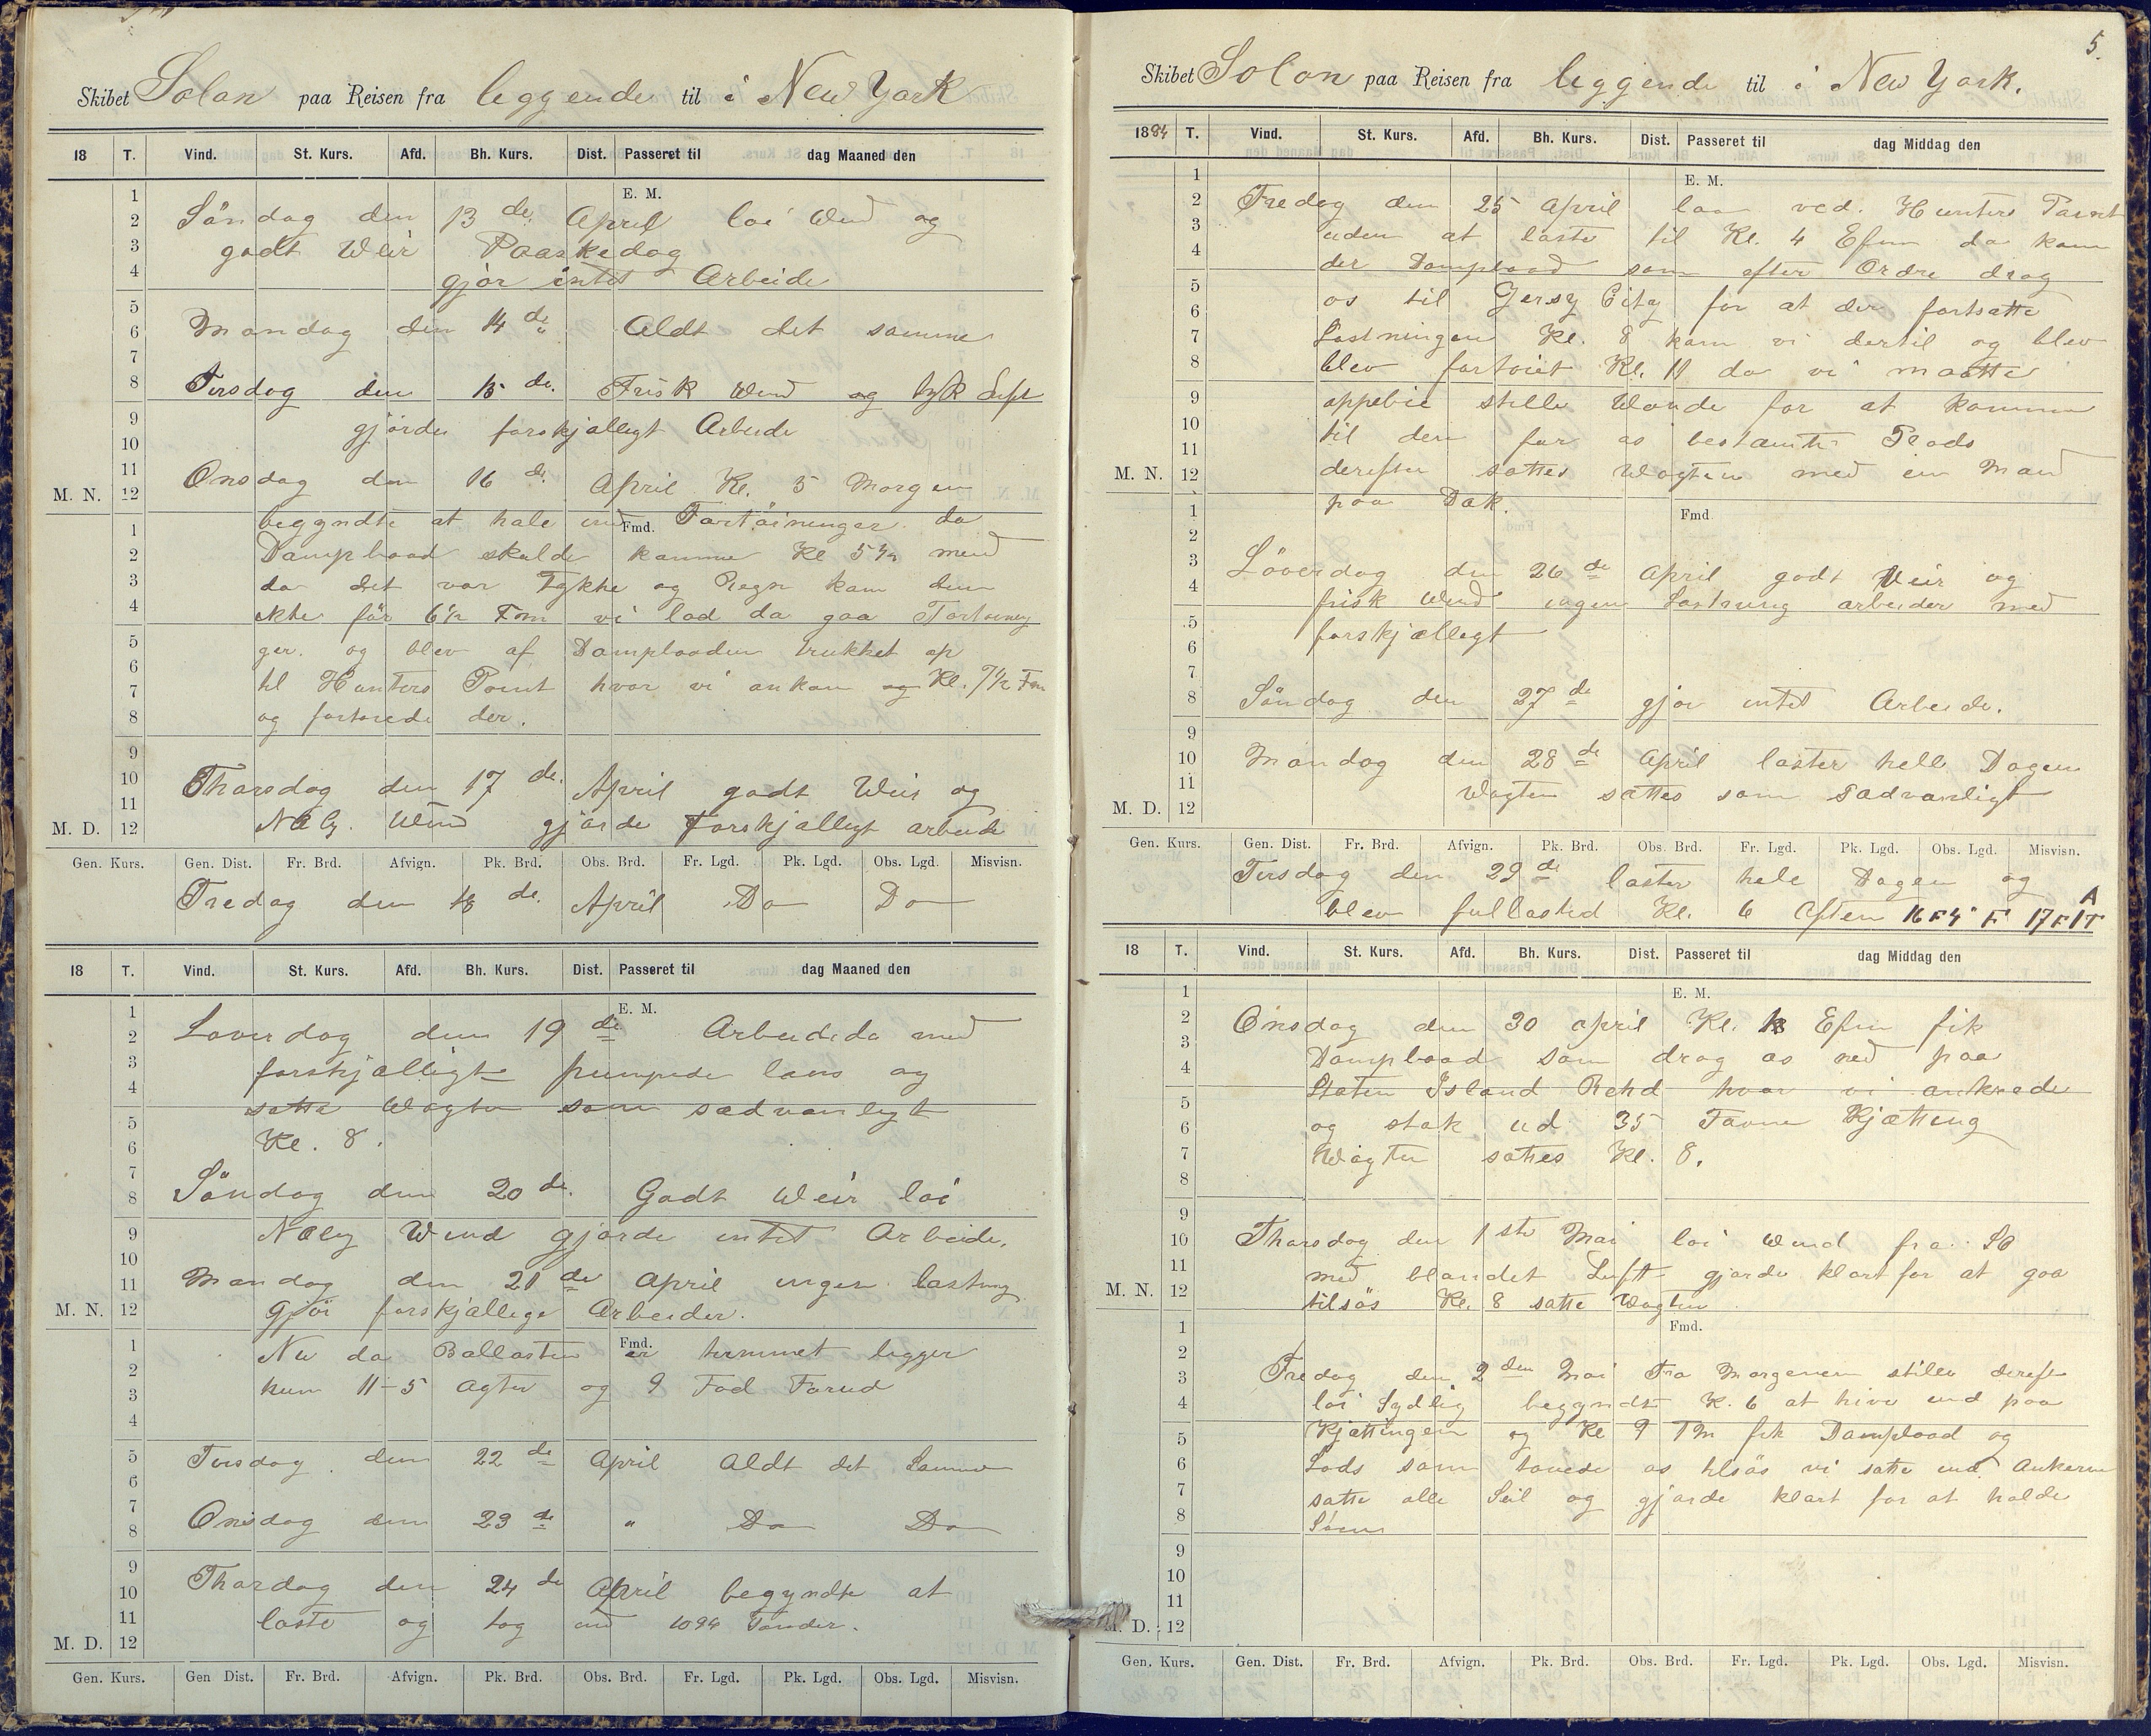 Skibet Solon paa Reisen fra leggende til i New York
18 T. Vind. St. Kurs. Afd. Bh. Kurs. Dist. Passeret til dag Maaned den
E. M.
Söndag den 13 de. April loi Wind og
godt Weir Paaskedag
gjör intet Arbeide
Mandag den 14 de " Aldt det samme
Tirsdag den 15 de. Frisk Wind og tyk Luft
gjörde forskjælligt Arbeide
Onsdag den 16 de. April Kl. 5 Morgen
M. N.
begyndte at hale ind Fortöininger da
Fmd.
Dampbaad skulde komme Kl 5 1/2 men
da det var Tykke og Regn kom den
ikke för 6 1/2 Fm vi lod da gaa Fortöinin
ger. og blev af Dampbaaden trukket op
til Hunters Point hvor vi ankom og Kl. 7 1/2 Fm
og fortöiede der.
Tharsdag den 17 de. April godt Weir og
M. D.
NOly. Wind gjörde Forskjælligt arbeide
Gen. Kurs. Gen. Dist. Fr. Brd. Afvign. Pk. Brd. Obs. Brd. Fr. Lgd. Pk. Lgd. Obs. Lgd. Misvisn.
Fredag den 18 de. April Do Do
18 T. Vind. St. Kurs. Afd. Bh. Kurs. Dist. Passeret til dag Maaned den
E. M.
Loverdag den 19 de Arbeidede med
forskjælligt pumpede læns og
satte Wagten som sædvanligt
Kl. 8.
Söndag den 20 de. Godt Weir loi
NOly Wind gjorde intet Arbeide.
Mandag den 21 de April ingen lastning
M. N.
gjör forskjællige Arbeider.
Nu da Ballasten er tømmet ligger
Fmd.
kun 11-5 Agter og 9 Fod Forud
Tirsdag den 22 de April Aldt det Samme
Onsdag den 23 de " Do Do
Tharsdag den 24 de April begyndte at
laste og tog ind 1094 Tønder.
M. D.
Gen. Kurs. Gen Dist. Fr. Brd. Afvign. Pk. Brd. Obs. Brd. Fr. Lgd. Pk. Lgd. Obs. Lgd. Misvisn.
5.
Skibet Solon paa Reisen fra leggende til i New York.
1884 T. Vind. St. Kurs. Afd. Bh. Kurs. Dist. Passeret til dag Middag den
E. M.
Fredag den 25 April laa ved. Hunters Point
uden at laste til Kl. 4 Efm da kom
der Dampbaad som efter Ordre drog
os til Gersy City for at der fortsatte
Lastningen Kl. 8 kom vi dertil og blev
blev fortöiet Kl. 11 da vi maatte
oppebie stille Wande for at komme
til den for os bestamte Plads
M. N.
derefter sattes Wagten med en Mand
paa Dæk.
Fmd
Löverdag den 26 de April godt Veir og
frisk Wind ingen Lastning arbeider med
forskjælligt
Söndag den 27 de gjör intet Arbeide.
Mandag den 28 de April laster hele Dagen
M. D.
Wagten sattes som sædvanligt
Gen. Kurs. Gen. Dist. Fr. Brd. Afvign. Pk. Brd. Obs. Brd. Fr. Lgd. Pk. Lgd. Obs. Lgd. Misvisn.
Tirsdag den 29 de laster hele Dagen og
blev fullasted Kl. 6 Aften 16 F 4" F 17 F 1T A
18 T. Vind. St. Kurs. Afd. Bh. Kurs. Dist. Passeret til dag Middag den
E. M.
Onsdag den 30 april Kl. Efm fik
Dampbaad som drog os ned paa
Staten Island Rehd hvor vi ankrede
og stak ud 35 Favne Kjætting
Wagten sattes Kl. 8.
Tharsdag den 1 ste Mai loi Wind fra SO
med blandet Luft gjorde klart for at gaa
M. N.
tilsös Kl. 8 satte Wagten
Fmd.
Fredag den 2 den Mai Fra Morgenen stille dereft
loi Sydlig begyndt K. 6 at hive ind paa
Kjættingen og Kl 9 Fm fik Dampbaad og
Lods som touede os tilsös vi satte ind Ankerne
satte alle Seil og gjorde klart for at holde
Söen
M. D.
Gen. Kurs. Gen. Dist. Fr. Brd. Afvign. Pk. Brd. Obs. Brd. Fr. Lgd. Pk. Lgd. Obs. Lgd. Misvisn.